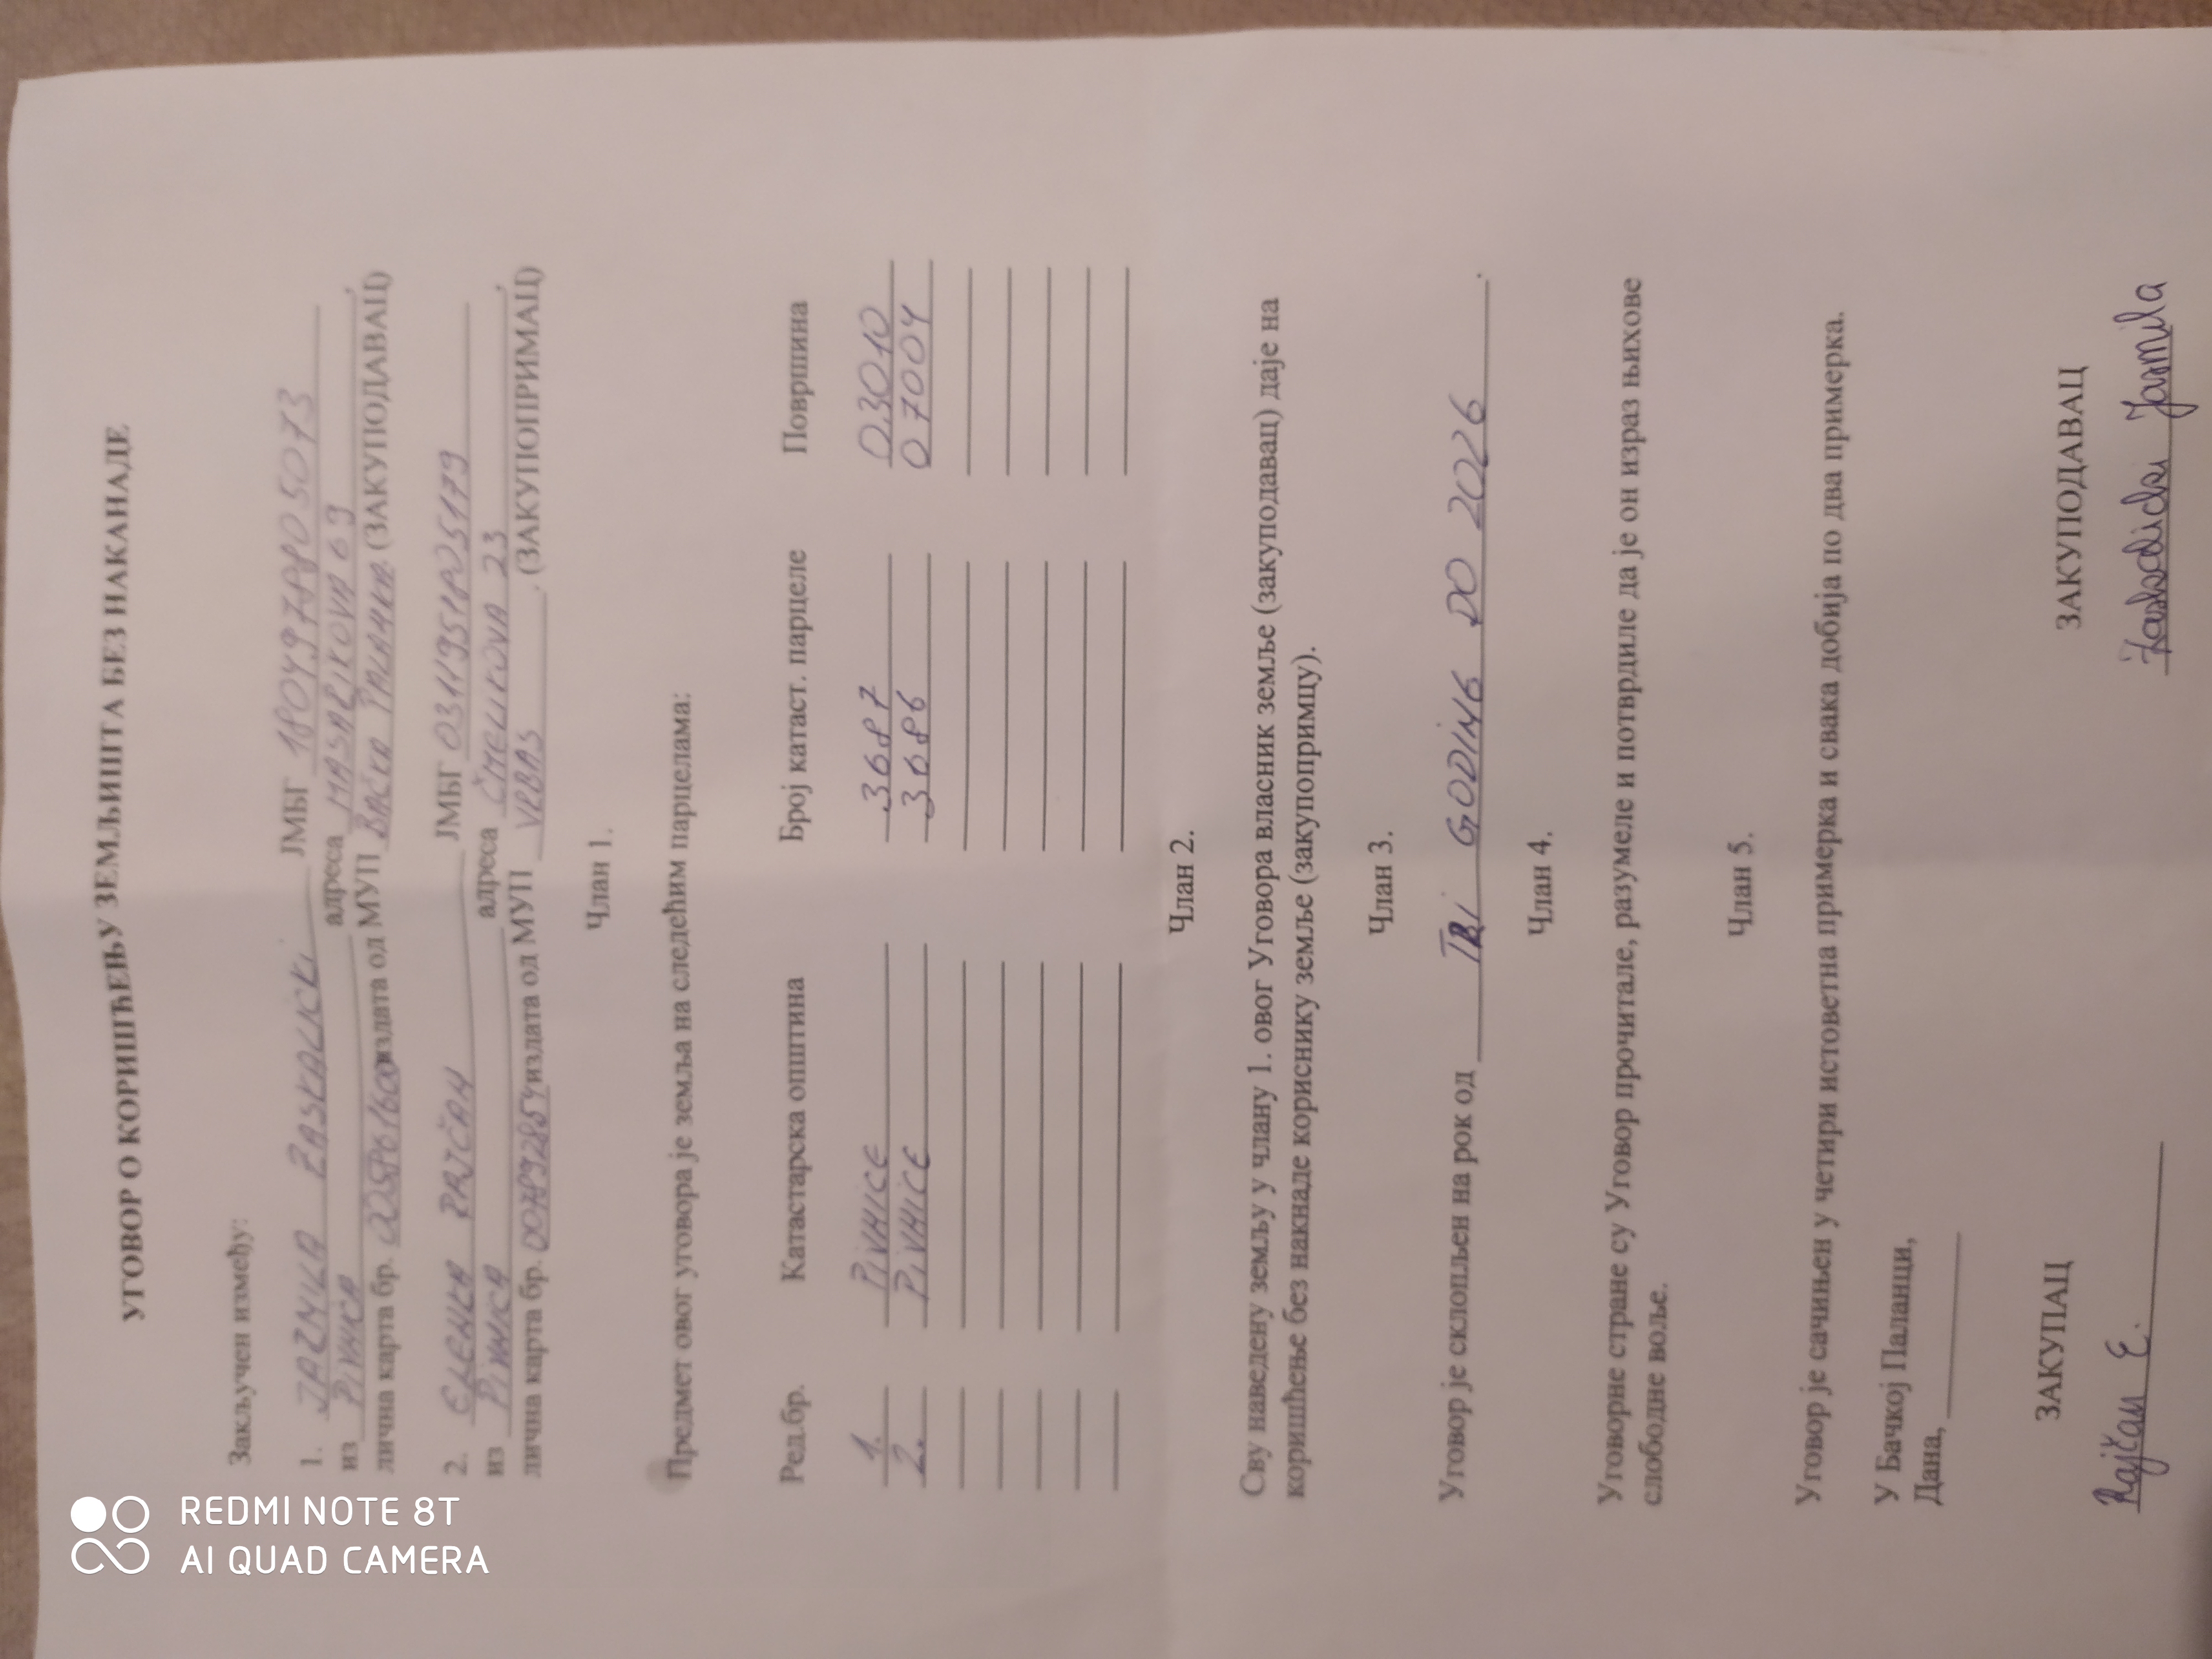 УГОВОР О КОРИШЋЕЊУ ЗЕМЉИШТА БЕЗ НАКАНАДЕ
Закључен између:
1. JARMILA ZASKALICKI ЈМБГ
из PIVNICA адреса MASARIKOVA 69,
лична карта бр. издата од МУП BAČKA PALANKA (ЗАКУПОДАВАЦ)
2. ELENKA RAJČAN ЈМБГ
из PIVNICA адреса ČMELIKOVA 23,
лична карта бр. издата од МУП VRBAS, (ЗАКУПОПРИМАЦ)
Члан 1.
Предмет овог уговора је земља на следећим парцелама:
Ред.бр. Катастарска општина Број катаст. парцеле Површина
1. PIVNICE 3687 0,3010
2. PIVNICE 3686 0 7004
Члан 2.
Сву наведену земљу у члану 1. овог Уговора власник земље (закуподавац) даје на
коришћење без накнаде кориснику земље (закупопримцу).
Члан 3.
Уговор је склопљен на рок од TRI GODINE DO 2026.
Члан 4.
Уговорне стране су Уговор прочитале, разумеле и потврдиле да је он израз њихове
слободне воље.
Члан 5.
Уговор је сачињен у четири истоветна примерка и свака добија по два примерка.
У Бачкој Паланци,
Дана,
ЗАКУПАЦ ЗАКУПОДАВАЦ
Rajčan E. Zaskalicki Jarmila
REDMI NOTE 8T
AI QUAD CAMERA